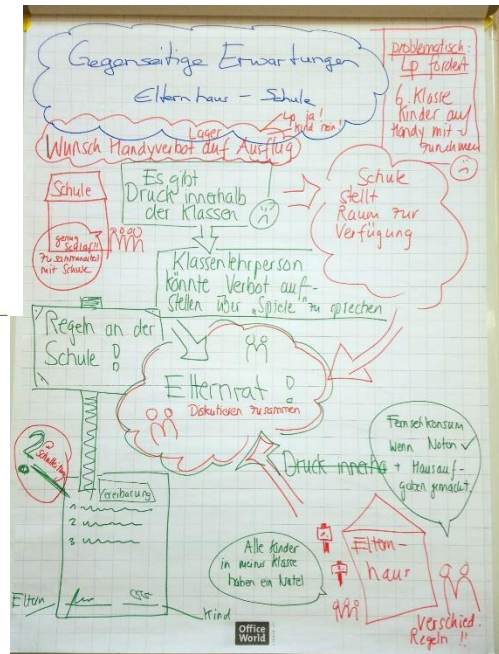 Gegenseitige Erwartungen
Elternhaus – Schule
problematisch:
Lp fordert
6. Klasse
Kinder auf
Handy mit
zunehmen
Lager
Lp ja!
Kind nein!
Wunsch Handyverbot auf Ausflug
Schule
genug
Schlaf!!
zusammen
mit Schule
Es gibt
Druck innerhalb
der Klassen
Schule
stellt
Raum zur
Verfügung
Klassenlehrperson
könnte Verbot auf-
stellen über „Spiele" zu sprechen
Regeln an der
Schule !
Elternrat !
Diskutieren zusammen
?
Schulleitung
Vereinbarung
1
2
3
Eltern
Kind
Druck innerha
Fernsehkonsum
wenn Noten ✓
+ Hausauf-
gaben gemacht.
Alle Kinder
in meiner Klasse
haben ein Natel
Eltern-
haus
Verschied.
Regeln !!
Office
World